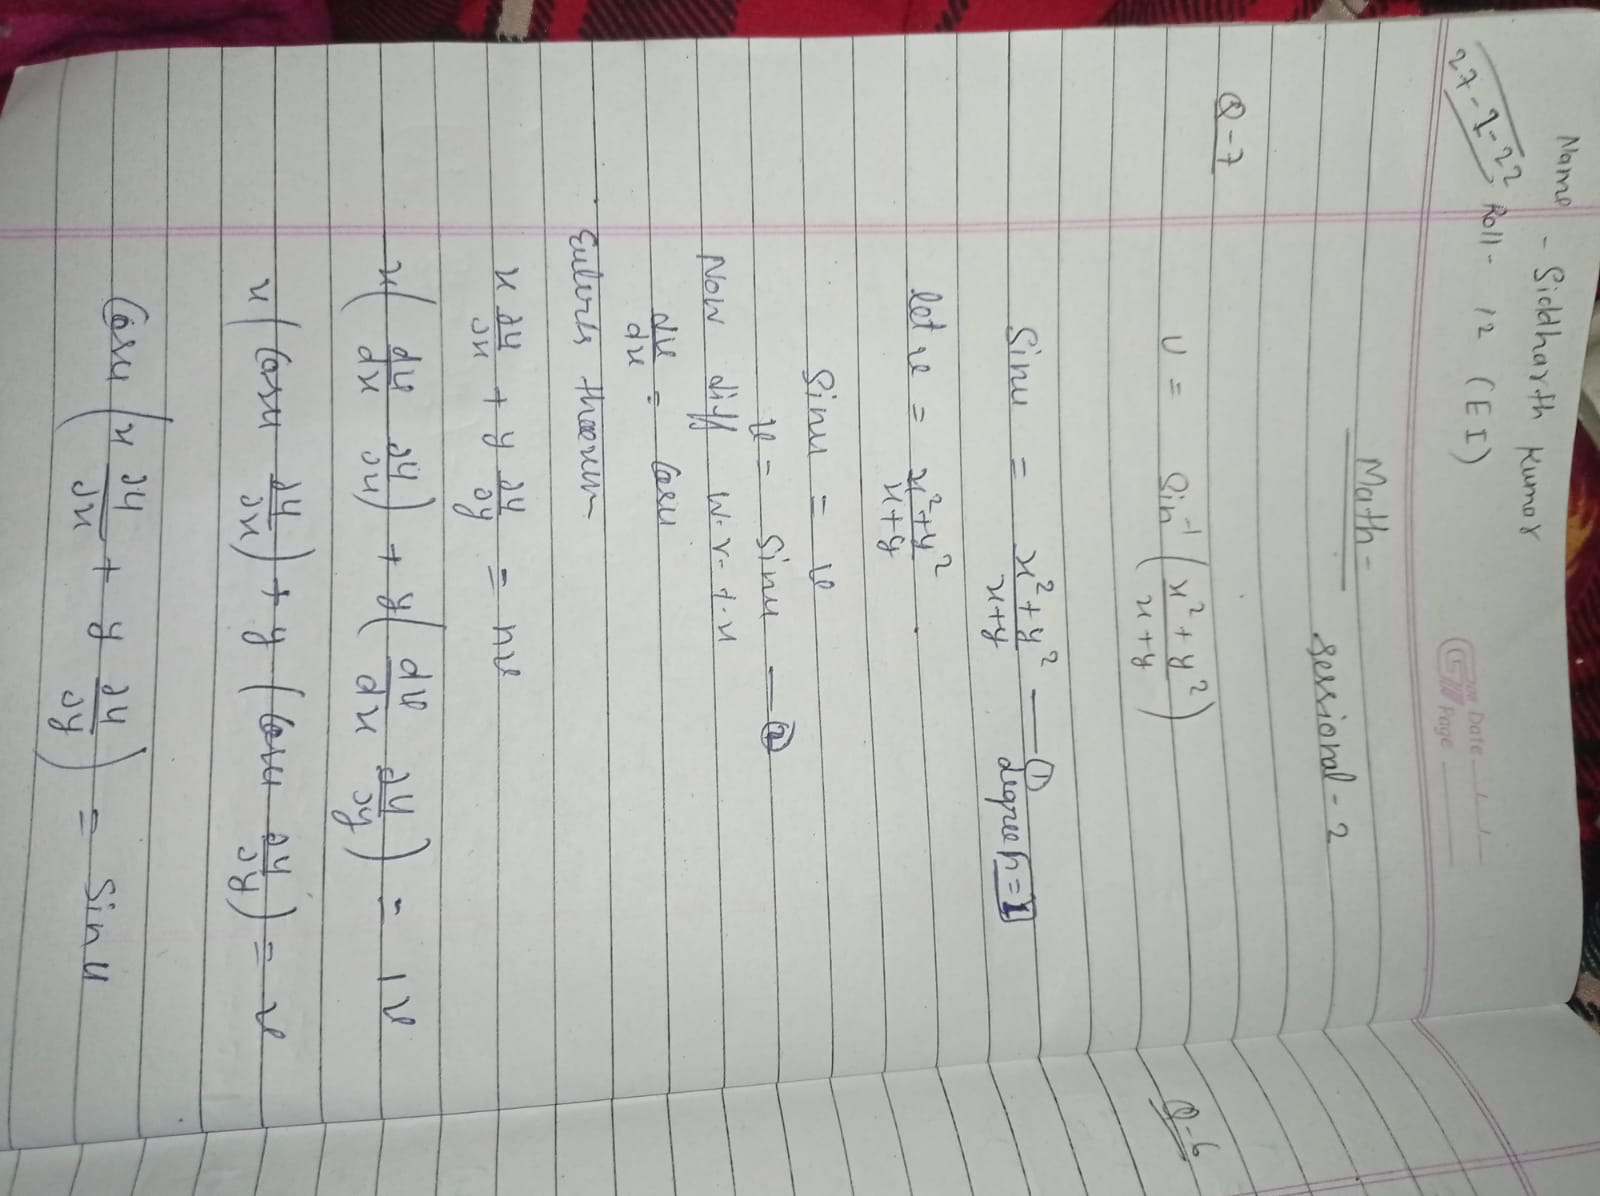 Name - Siddharth Kumar
27-7-22 Roll- 12 (EI)
Date
Page
Math-
Sessional-2
Q-7
U = Sin⁻¹ ( (x²+y²) / (x+y) )
Sinu = (x²+y²) / (x+y) — ①
degree n=1
let v = (x²+y²) / (x+y) .
Sinu = v
v = Sinu — ②
Now diff w.r.t.u
dv/du = Cosu
Eulers theorem-
x ∂u/∂x + y ∂u/∂y = nv
x( dv/du ∂u/∂x ) + y( dv/du ∂u/∂y ) = 1v
x( Cosu ∂u/∂x ) + y ( Cosu ∂u/∂y ) = v
Cosu ( x ∂u/∂x + y ∂u/∂y ) = Sinu
Q-6